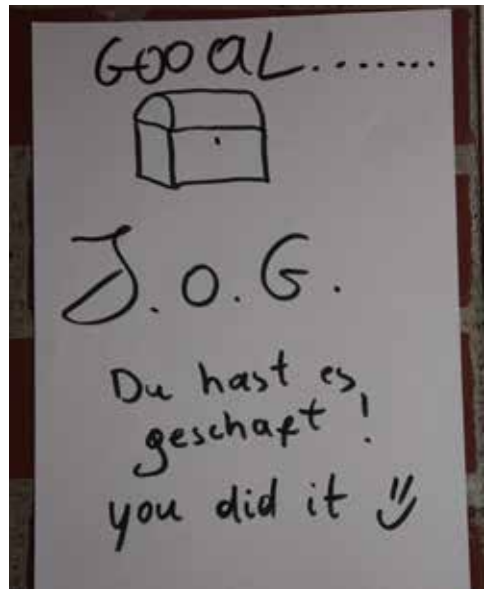 GOOaL.......
J.O.G.
Du hast es
geschaft!
you did it